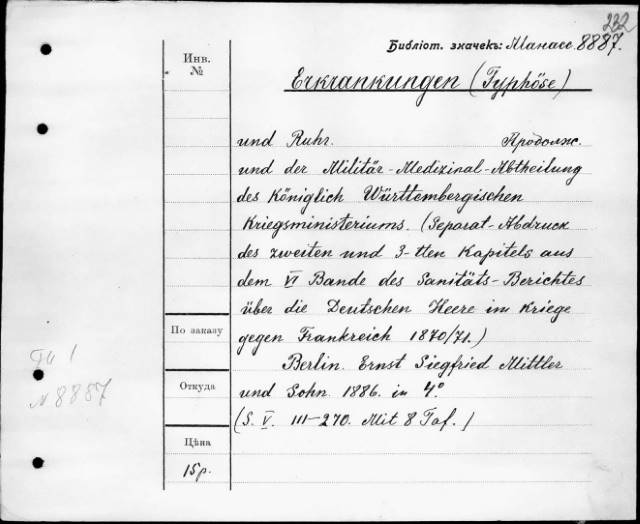 222
Библіот. значекъ: Манасс. 8887.
Инв.
№
Erkrankungen (Typhöse)
und Ruhr. Продолж.
und der Militär-Medizinal-Abtheilung
des Königlich Württembergischen
Kriegsministeriums. (Separat-Abdruck
des zweiten und 3-tten Kapitels aus
dem VI Bande des Sanitäts-Berichtes
über die Deutschen Heere im Kriege
По заказу
gegen Frankreich 1870/71.)
Berlin. Ernst Siegfried Mittler
Откуда
und Sohn. 1886. in 4°
№ 8887
(S. V. III—270. Mit 8 Taf.)
Цѣна
15р.